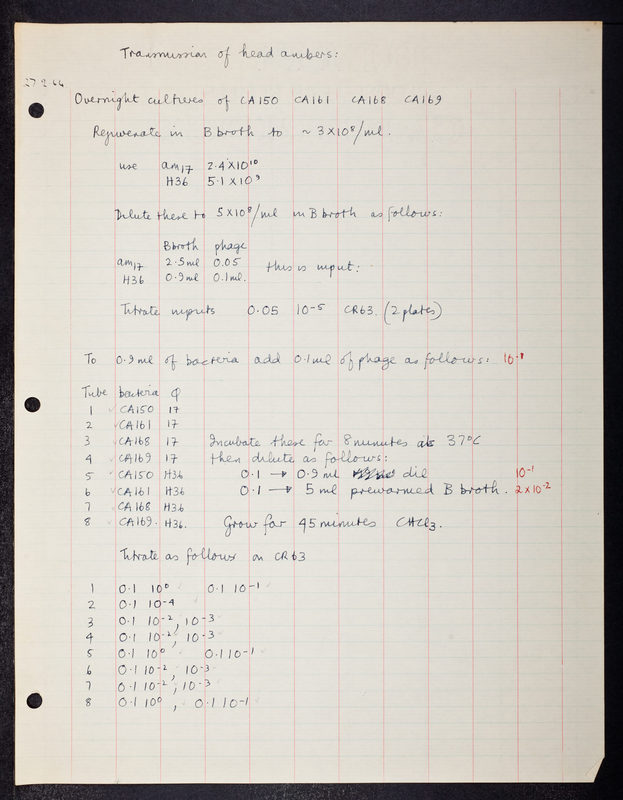 Transmission of head ambers:
27.2.64
Overnight cultures of CA150 CA161 CA168 CA169
Rejuvenate in B broth to ~ 3×10⁸/ml.
use am17 2.4×10¹⁰
H36 5.1×10⁹
Dilute these to 5×10⁸/ml in B broth as follows:
B broth phage
am17 2.5ml 0.05 this is input:
H36 0.9ml 0.1ml.
Titrate inputs 0.05 10⁻⁵ CR63. (2 plates)
To 0.9ml of bacteria add 0.1ml of phage as follows:
Tube bacteria φ
1 ✓ CA150 17
2 ✓ CA161 17
3 ✓ CA168 17 Incubate these for 8 minutes at 37°C
4 ✓ CA169 17 then dilute as follows:
5 ✓ CA150 H36 0.1 → 0.9ml dil 10⁻¹
6 ✓ CA161 H36 0.1 → 5ml prewarmed B broth. 2×10⁻²
7 CA168 H36
8 ✓ CA169. H36. Grow for 45 minutes CHCl₃.
Titrate as follows on CR63
1 0.1 10⁰ ✓ 0.1 10⁻¹ ✓
2 0.1 10⁻⁴
3 0.1 10⁻², 10⁻³
4 0.1 10⁻², 10⁻³
5 0.1 10⁰ 0.1 10⁻¹
6 0.1 10⁻², 10⁻³
7 0.1 10⁻², 10⁻³
8 0.1 10⁰, 0.1 10⁻¹